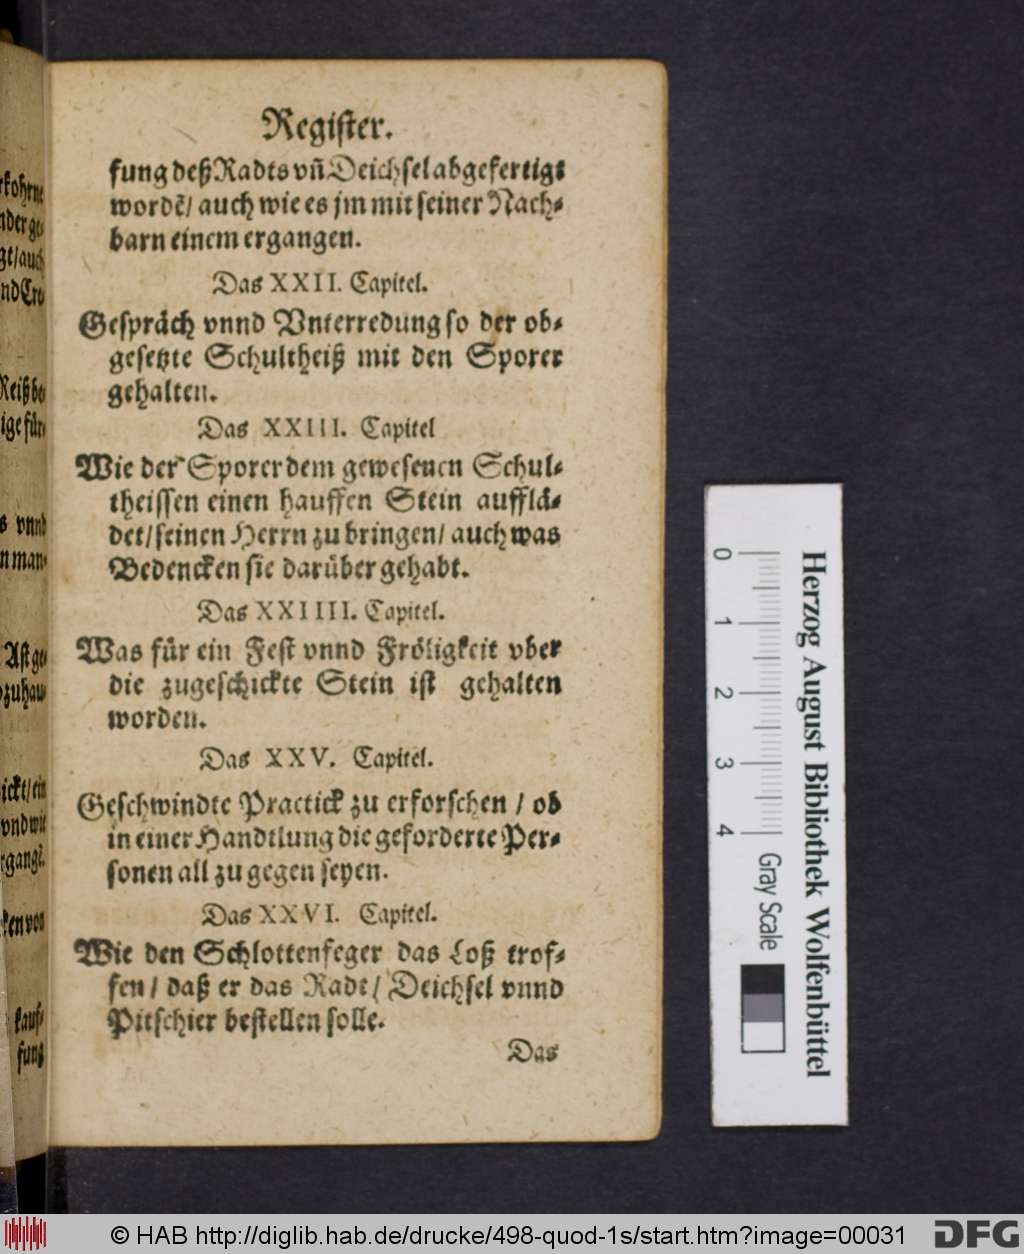 Register.
fung deß Radts vñ Deichsel abgefertigt
wordē/ auch wie es jm mit seiner Nach-
barn einem ergangen.
Das XXII. Capitel.
Gespräch vnnd Vnterredung so der ob-
gesetzte Schultheiß mit den Sporer
gehalten.
Das XXIII. Capitel
Wie der Sporer dem gewesenen Schul-
theissen einen hauffen Stein aufflä-
det/ seinen Herrn zu bringen/ auch was
Bedencken sie darüber gehabt.
Das XXIIII. Capitel.
Was für ein Fest vnnd Fröligkeit vber
die zugeschickte Stein ist gehalten
worden.
Das XXV. Capitel.
Geschwindte Practick zu erforschen / ob
in einer Handtlung die geforderte Per-
sonen all zu gegen seyen.
Das XXVI. Capitel.
Wie den Schlottenfeger das Loß trof-
fen / daß er das Radt/ Deichsel vnnd
Pitschier bestellen solle.
Das
nder ge-
gt/ auch
Reiß be
ige für-
s vnnd
n man-
Ast ge-
zuhaw
ickt/ ein
vnd wie
rgangē.
ken von
kauf-
fung
0 1 2 3 4
Gray Scale
Herzog August Bibliothek Wolfenbüttel
© HAB http://diglib.hab.de/drucke/498-quod-1s/start.htm?image=00031
DFG